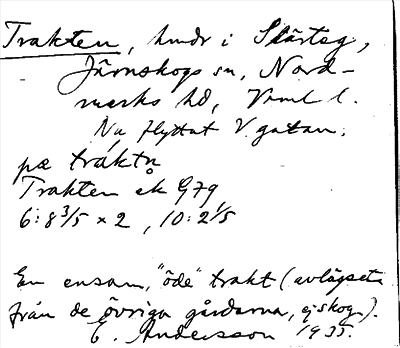 Trakten, hmdr i Slärteg,
Järnskogs sn, Nord-
marks hd, Vrml l.
Nu flyttat V. gatan.
pæ tráktn
Trakten ek G79
6:8 3/5 × 2, 10:2 1/5
En ensam, "öde" trakt (avlägset
från de övriga gårdarna, ej skog).
E. Andersson 1935.